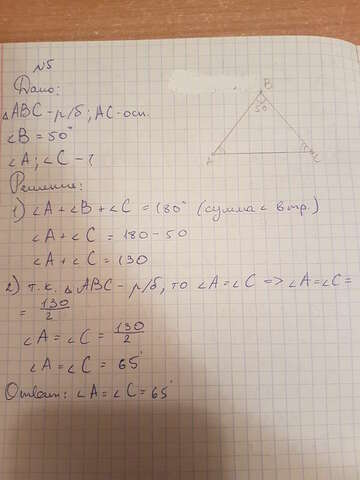 №5
Дано:
△ABC - р/б; AC-осн.
∠B = 50°
∠A; ∠C - ?
Решение:
1) ∠A + ∠B + ∠C = 180° (сумма ∠ в тр.)
∠A + ∠C = 180 - 50
∠A + ∠C = 130
2) т.к. △ABC - р/б, то ∠A = ∠C => ∠A = ∠C =
= 130/2
∠A = ∠C = 130/2
∠A = ∠C = 65°
Ответ: ∠A = ∠C = 65°
B
50°
A
C